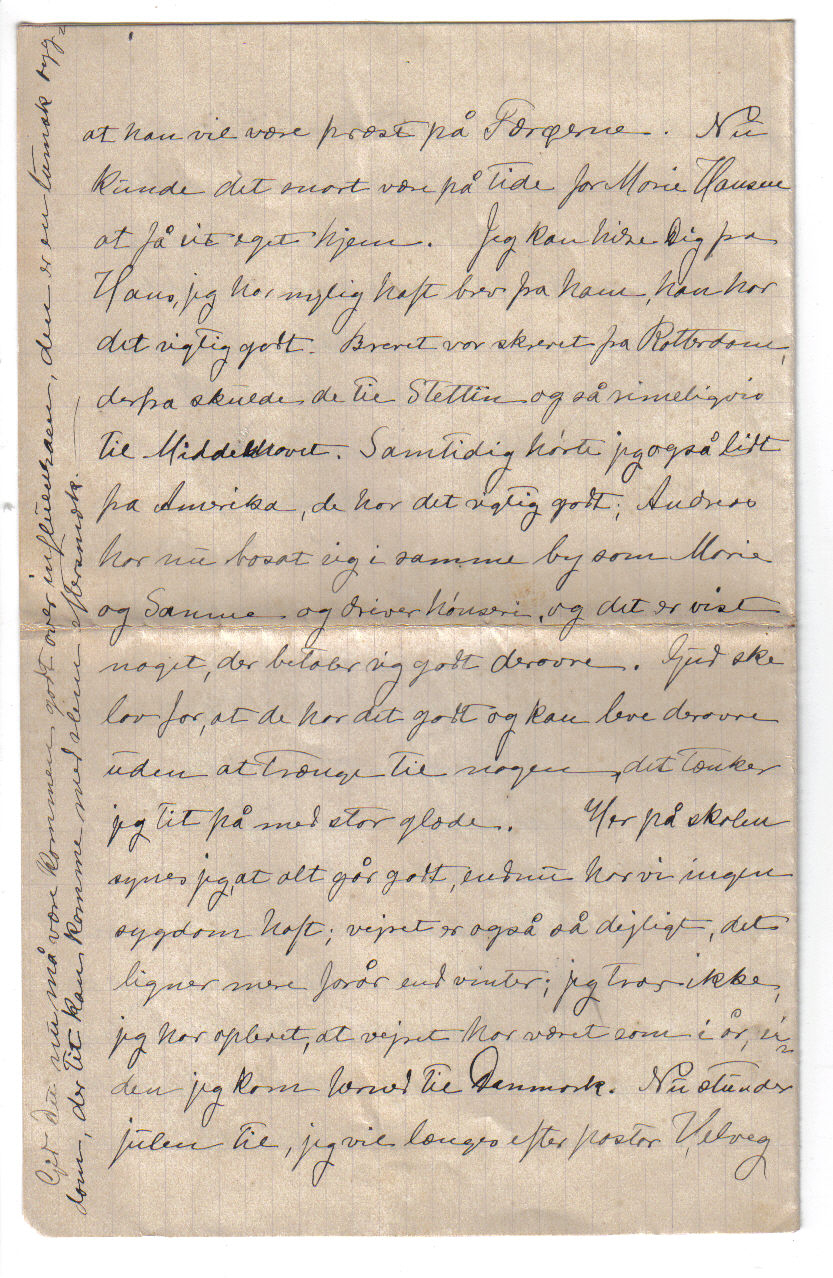 at han vil være præst på Færøerne. Nu
kunde det snart være på tide for Marie Hansen
at få sit eget hjem. Jeg kan hilse Dig fra
Hans, jeg har nylig haft brev fra ham, han har
det rigtig godt. Brevet var skrevet fra Rotterdam,
derfra skulde de til Stettin og så rimeligvis
til Middelhavet. Samtidig hørte jeg også lidt
fra Amerika, de har det rigtig godt; Andreas
har nu bosat sig i samme by som Marie
og Sanne og driver hønseri, og det er vist
noget, der betaler sig godt derovre. Gud ske
lov for, at de har det godt og kan leve derovre
uden at trænge til nogen, det tænker
jeg tit på med stor glæde. Her på skolen
synes jeg, at alt går godt, endnu har vi ingen
sygdom haft; vejret er også så dejligt, det
ligner mere forår end vinter; jeg tror ikke,
jeg har oplevet, at vejret har været som i år, si-
den jeg kom herned til Danmark. Nu stunder
julen til, jeg vil længes efter pastor
Gid Du nu må være kommen godt over influenzaen, den er en lumsk syg-
dom, der tit kan komme med slem eftersmæk.